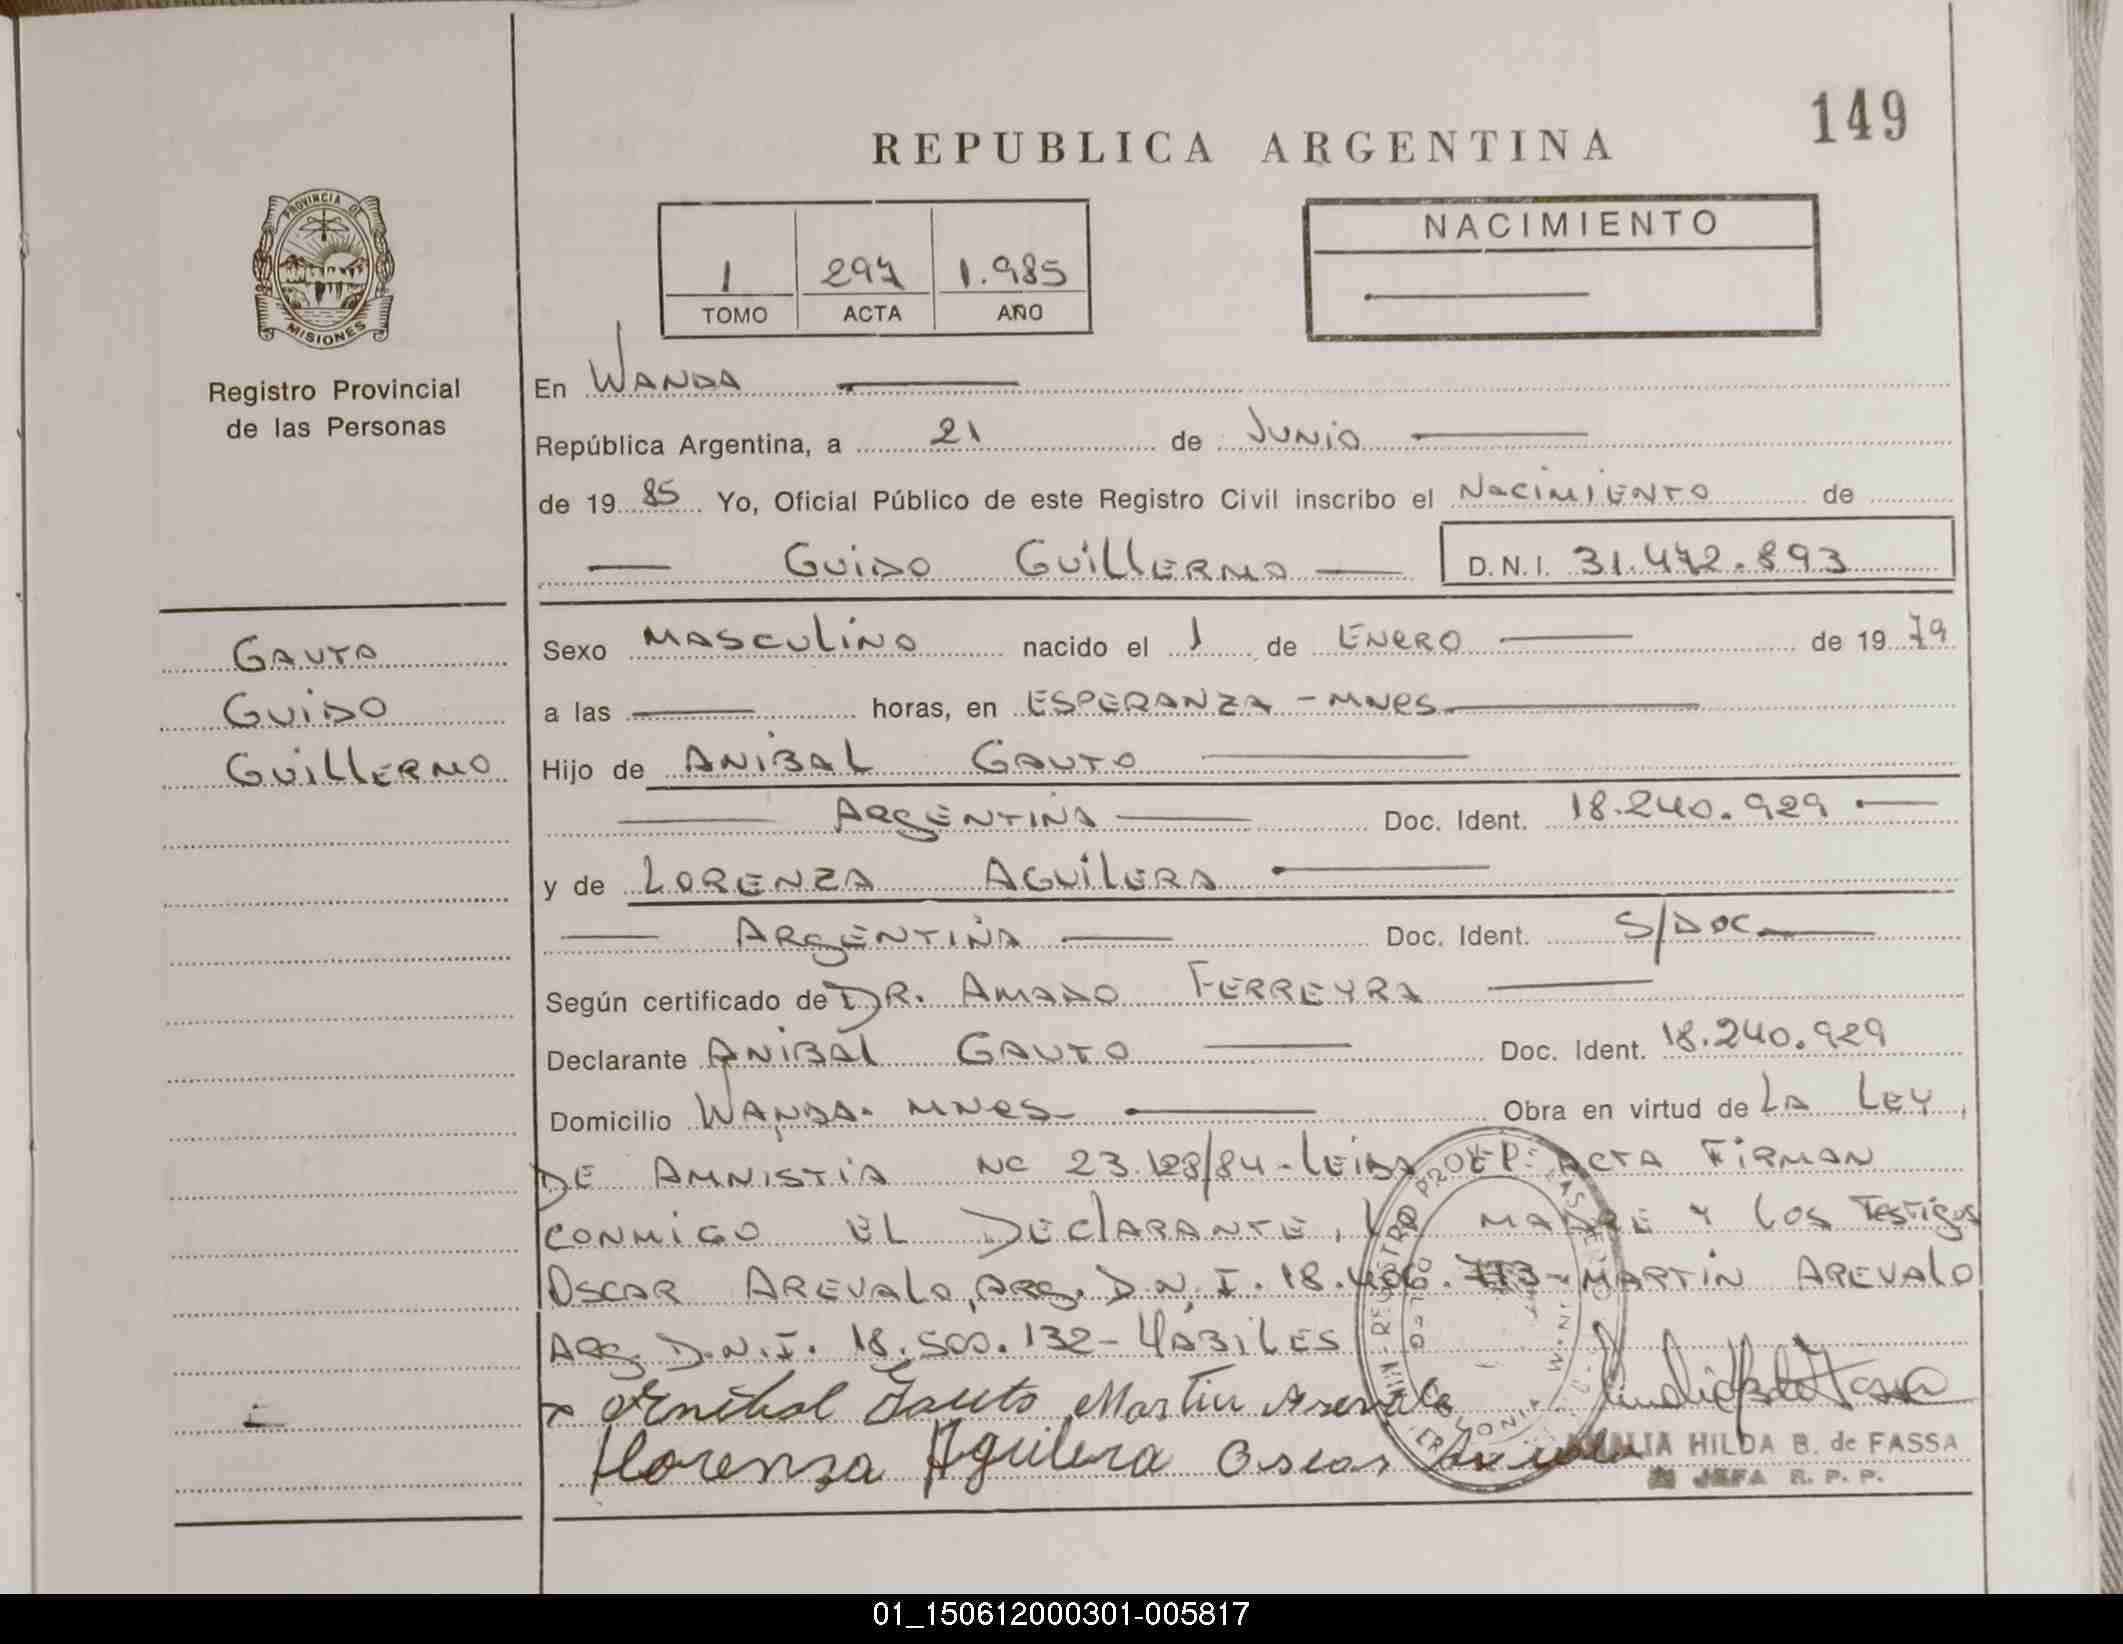 149
REPUBLICA ARGENTINA
PROVINCIA DE
MISIONES
Registro Provincial
de las Personas
1 297 1.985
TOMO ACTA AÑO
NACIMIENTO
En WANDA
República Argentina, a 21 de JUNIO
de 19 85 Yo, Oficial Público de este Registro Civil inscribo el NACIMIENTO de
GUIDO GUILLERMO D.N.I. 31.472.893
GAUTO
GUIDO
GUILLERMO
Sexo MASCULINO nacido el 1 de ENERO de 19 79
a las horas, en ESPERANZA - MNES
Hijo de ANIBAL GAUTO
ARGENTINA Doc. Ident. 18.240.929
y de LORENZA AGUILERA
ARGENTINA Doc. Ident. S/DOC
Según certificado de DR. AMADO FERREYRA
Declarante ANIBAL GAUTO Doc. Ident. 18.240.929
Domicilio WANDA. MNES Obra en virtud de LA LEY
DE AMNISTIA Nº 23.128/84 - LEIDA EL ACTA FIRMAN
CONMIGO EL DECLARANTE, LA MADRE Y LOS TESTIGOS
OSCAR AREVALO, ARG. D.N.I. 18.406.713 - MARTIN AREVALO
ARG. D.N.I. 18.500.132 - HABILES
x Anibal Gauto Martin Arevalo
Llorenza Aguilera Oscar Arevalo
AMALIA HILDA B. de FASSA
JEFA R. P. P.
01_150612000301-005817